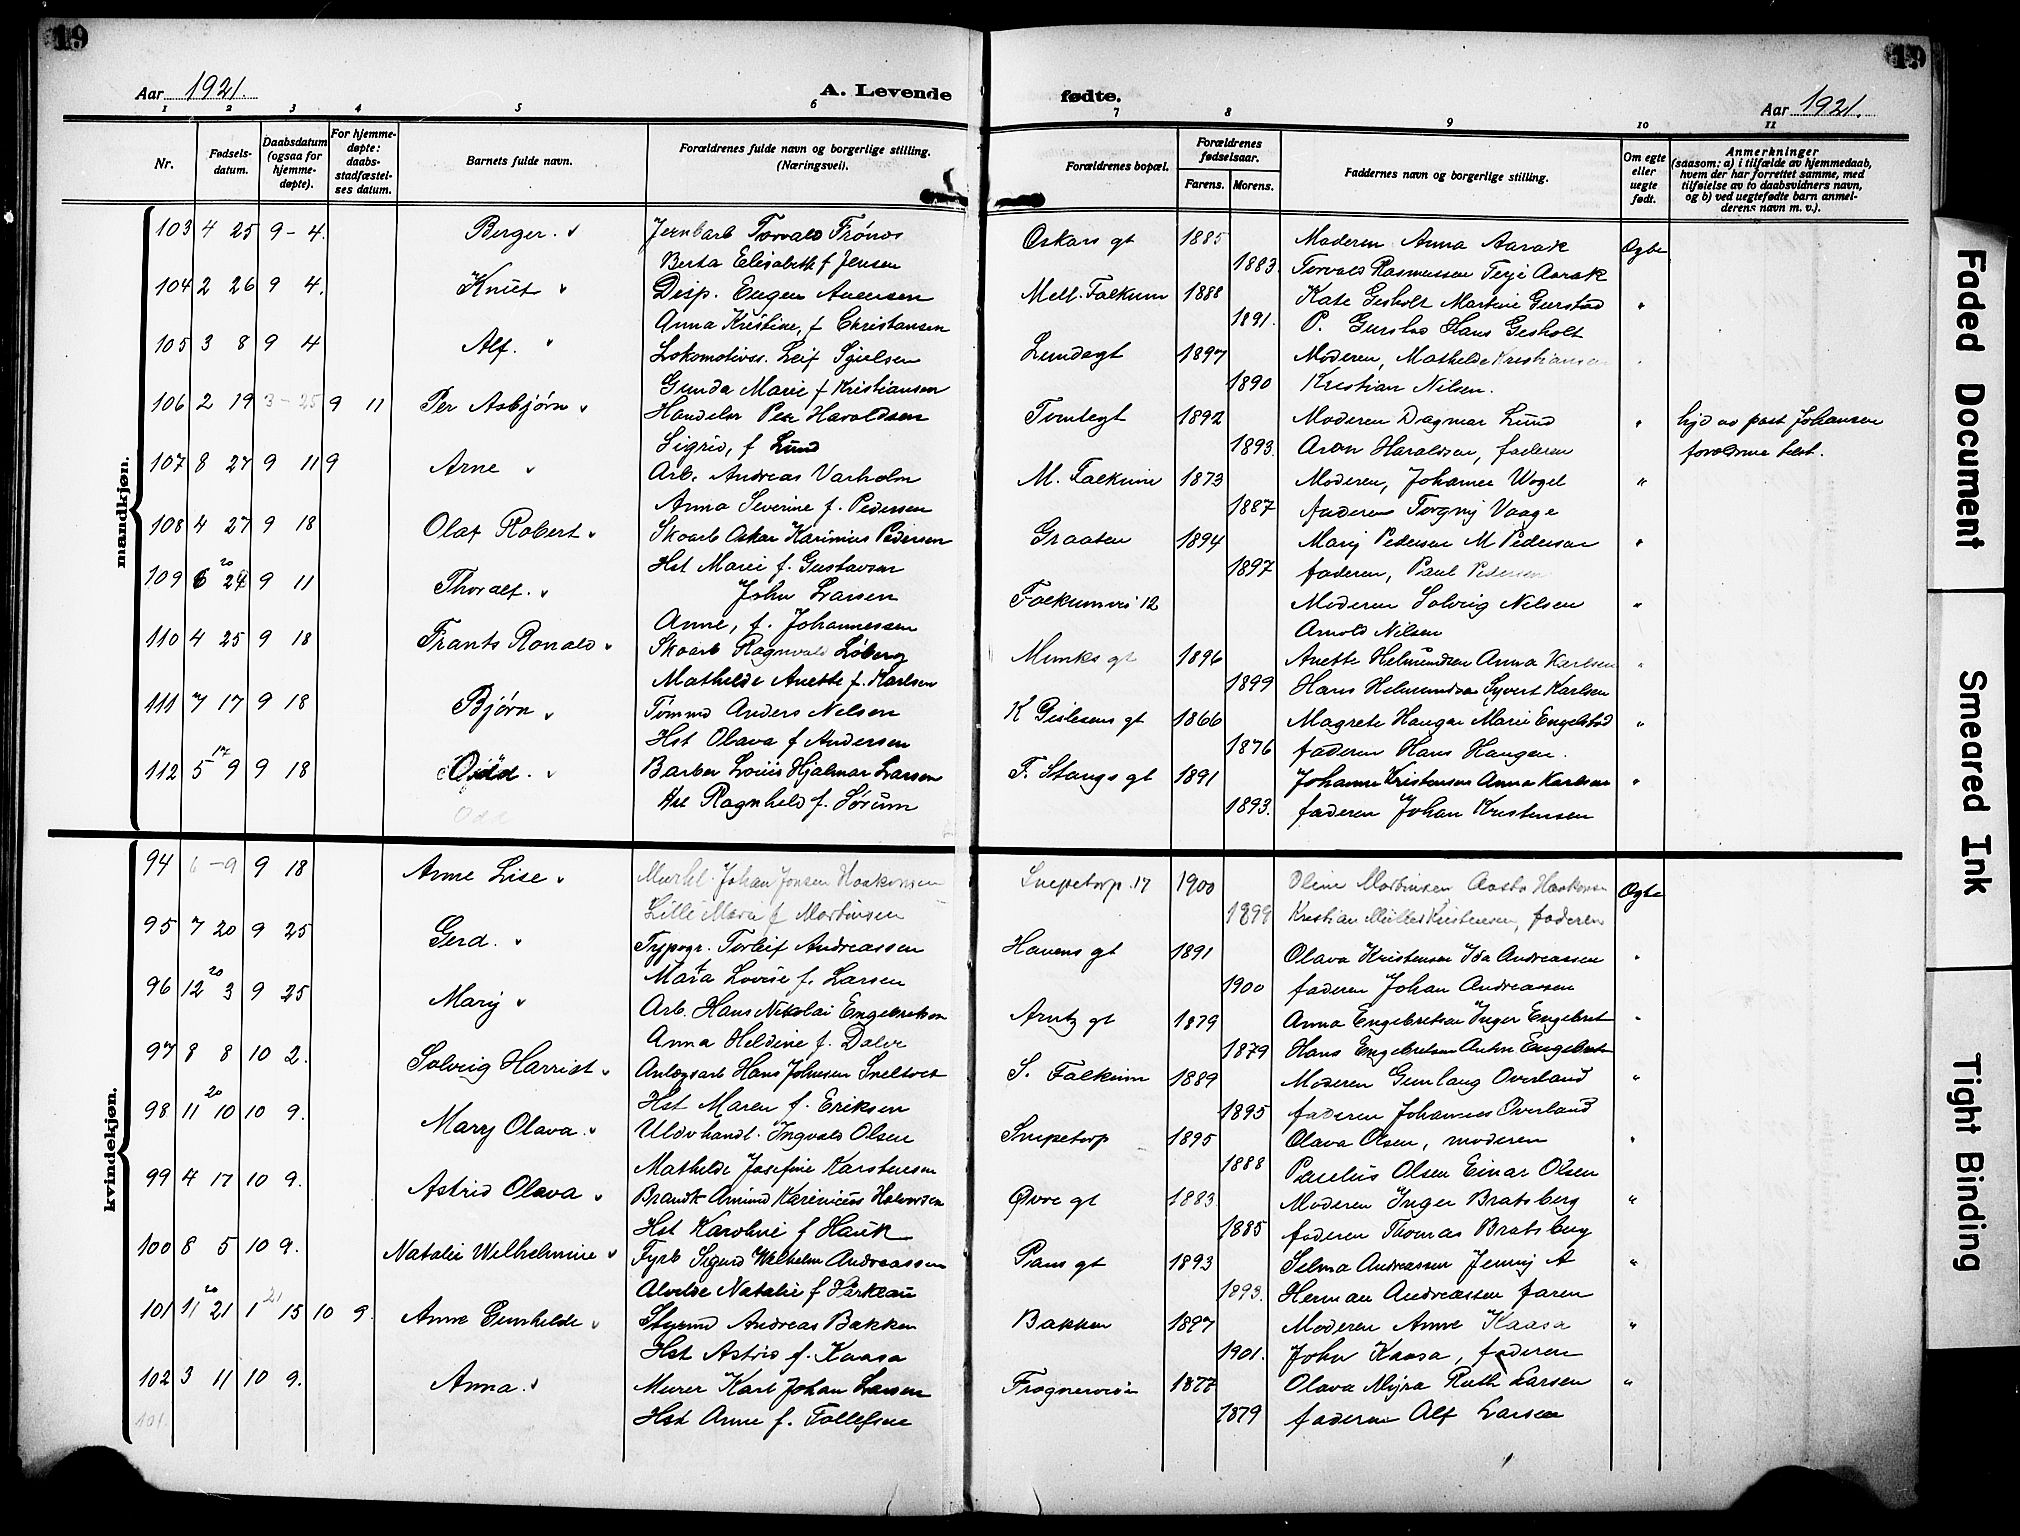 19
19
Aar 1921.
A. Levende
fødte.
Aar 1921.
1 2 3 4 5 6 7 8 9 10 11
Nr.
Fødsels-
datum.
Daabsdatum
(ogsaa for
hjemme-
døpte).
For hjemme-
døpte:
daabs-
stadfæstel-
ses datum.
Barnets fulde navn.
Forældrenes fulde navn og borgerlige stilling.
(Næringsvei).
Forældrenes bopæl.
Forældrenes
fødselsaar.
Farens. Morens.
Faddernes navn og borgerlige stilling.
Om egte
eller
uegte
født.
Anmerkninger
(saasom: a) i tilfælde av hjemmedaab,
hvem der har forrettet samme, med
tilføielse av to daabsvidners navn,
og b) ved uegtefødte barn anmel-
derens navn m. v.).
mandkjøn.
103 4 25 9 - 4. Berger. Jernbarb Torvald Trönes Oskars gt 1885 Moderen Anna Aarak Egte
Berta Elisabeth f Jensen 1883. Torvald Rasmussen Terje Aarak
104 2 26 9 4. Knut " Disp. Eugen Andersen Mell. Falkum 1888 Kate Gisholt Martine Gurstad "
Anna Kristine, f Christansen 1891. P. Gurstad Hans Gisholt
105 3 8 9 4 Alf. " Lokomotivss. Leif Sjielsen Lundegt 1897 Moderen, Mathelde Kristiansen
Gunda Marie f Kristiansen 1890 Kristian Nilsen.
106 2 19 3 - 25 9 11 Per Asbjørn Handelsr Per Haroldsen Tomtegt 1892 Moderen Dagmar Lund " hjd av past Johansen
Sigrid, f Lund 1893. Aron Haraldsen, faderen forældrene tilst.
107 8 27 9 11 9 Arne Arb. Andreas Varholm M. Falkum 1873 Moderen, Johanne Vogel "
Anna Severine f. Pedersen 1887 faderen Torgny Vaage
108 4 27 9 18 Olaf Robert Skoarb Oskar Karinius Pedersen Graaten 1894 Marij Pedersen M Pedersen "
Hst Marie f. Gustavsen 1897 faderen, Paul Pedersen
109 6 20 24 9 11 Thoralf. John Larsen Falkumvei 12 Moderen Solveig Nilsen "
Anne, f. Johannessen Arnold Nilsen
110 4 25 9 18 Frants Ronald Skoarb Ragnvald Løberg Munks gt 1896 Anette Helmundsen Anna Karlsen "
Mathilde Anette f. Karlsen 1899 Hans Helmundsen Syvert Karlsen
111 7 17 9 18 Bjørn Tømmd Anders Nilsen K Gislesens gt 1866 Magrete Haugen Marie Engelstad "
Hst Olava f Andersen 1876 faderen Hans Haugen.
112 5 17 9 9 18 Odd. Barber Louis Hjalmar Larsen F. Stangs gt 1891 Johanne Kristensen Anna Karlsen "
Odd Hst Ragnhild f. Sørum 1893. faderen Johan Kristensen
kvindekjøn.
94 6 - 9 9 18 Anne Lise Murhl. Johan Jonsen Haakonsen Snipetorp. 17 1900 Oline Martinsen Aasta Haakonsen Egte
Lilli Marie f Martinsen 1899 Kristian Müller Kristensen, faderen
95 7 20 9 25 Gerd. Typogr. Torleif Andreassen Havens gt 1891 Olava Kristensen Ida Andreassen "
Marta Lovise f. Larsen 1900 faderen Johan Andreassen
96 12 20 3 9 25 Marij Arb. Hans Nikolai Engebretsen Arntz gt 1879 Anna Engebretsen Inger Engebret "
Anna Heldine f. Dalve 1879 Hans Engebretsen Anton Engebret
97 8 8 10 2. Solveig Harriet Anlægsarb Hans Johnsen Sneltvet S. Falkum 1889 Moderen Gunlaug Overland "
Hst Maren f. Eriksen 1895 faderen Johannes Overland
98 11 20 10 10 9. Mary Olava Uldvhandl. Ingvald Olsen Snipetorp 1895 Olava Olsen, moderen "
Mathilde Josefine Karstensen 1888 Paulus Olsen Einar Olsen
99 4 17 10 9. Astrid Olava Brandk Amund Karinius Halvorsen Øvre gt 1883 Moderen Inger Bratsberg "
Hst Karoline f Hauk 1885 faderen Thomas Bratsberg
100 8 5 10 9. Natalie Wilhelmine Fyrb Sigurd Wilhelm Andreassen Prans gt 1893 Selma Andreassen Jenny A "
Alvilde Natalie f Harkeau 1893. Herman Andreassen faren
101 11 20 21 1 21 15 10 9. Anne Gunhilde Styrmd Andreas Bakken Bakken 1897 Moderen Anne Kaasa "
Hst Astrid f. Kaasa 1901. John Kaasa, faderen
102 3 11 10 9. Anna. Murer Karl Johan Larsen Frognerveien 1877 Olava Myra Ruth Larsen "
101. Hst Anne f. Tollefsen 1879 faderen Alf Larsen
Faded Document
Smeared Ink
Tight Binding